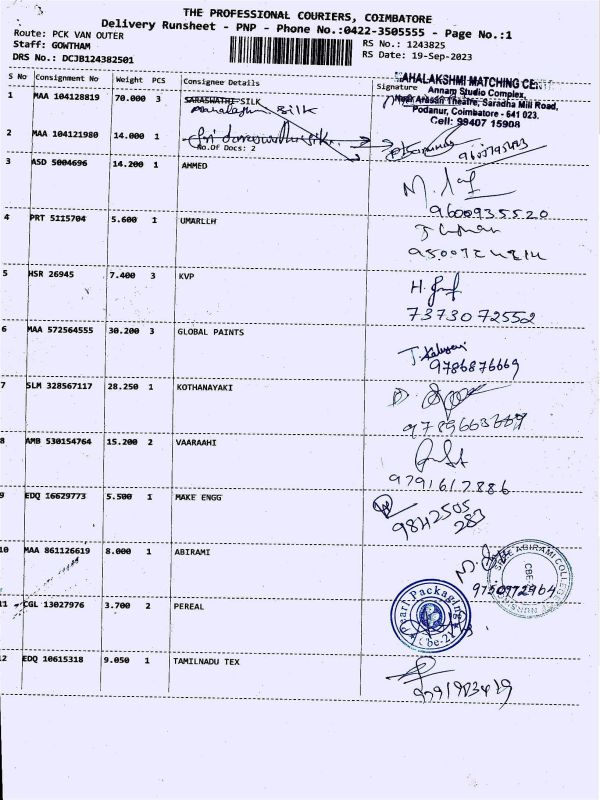 THE PROFESSIONAL COURIERS, COIMBATORE
Delivery Runsheet - PNP - Phone No.:0422-3505555 - Page No.:1
Route: PCK VAN OUTER
RS No.: 1243825
Staff: GOWTHAM
RS Date: 19-Sep-2023
DRS No.: DCJB124382501
S No Consignment No Weight PCS Consignee Details Signature
MAHALAKSHMI MATCHING CENT
Annam Studio Complex,
Near Arasan Theatre, Saradha Mill Road,
Podanur, Coimbatore - 641 023.
Cell: 99407 15908
1 MAA 104128819 70.000 3 SARASWATHI SILK
Mahalakshmi Silk
2 MAA 104121980 14.000 1 Sri Saraswathi Silk
No.Of Docs: 2
3 ASD 5004696 14.200 1 AHMED
9600935520
4 PRT 5115704 5.600 1 UMARLLH
5 HSR 26945 7.400 3 KVP
7373072552
6 MAA 572564555 30.200 3 GLOBAL PAINTS
9786876669
7 SLM 328567117 28.250 1 KOTHANAYAKI
8 AMB 530154764 15.200 2 VAARAAHI
9791617886
9 EDQ 16629773 5.500 1 MAKE ENGG
9842505
283
10 MAA 861126619 8.000 1 ABIRAMI
9750972964
11 CGL 13027976 3.700 2 PEREAL
Pearl Packaging
12 EDQ 10615318 9.050 1 TAMILNADU TEX